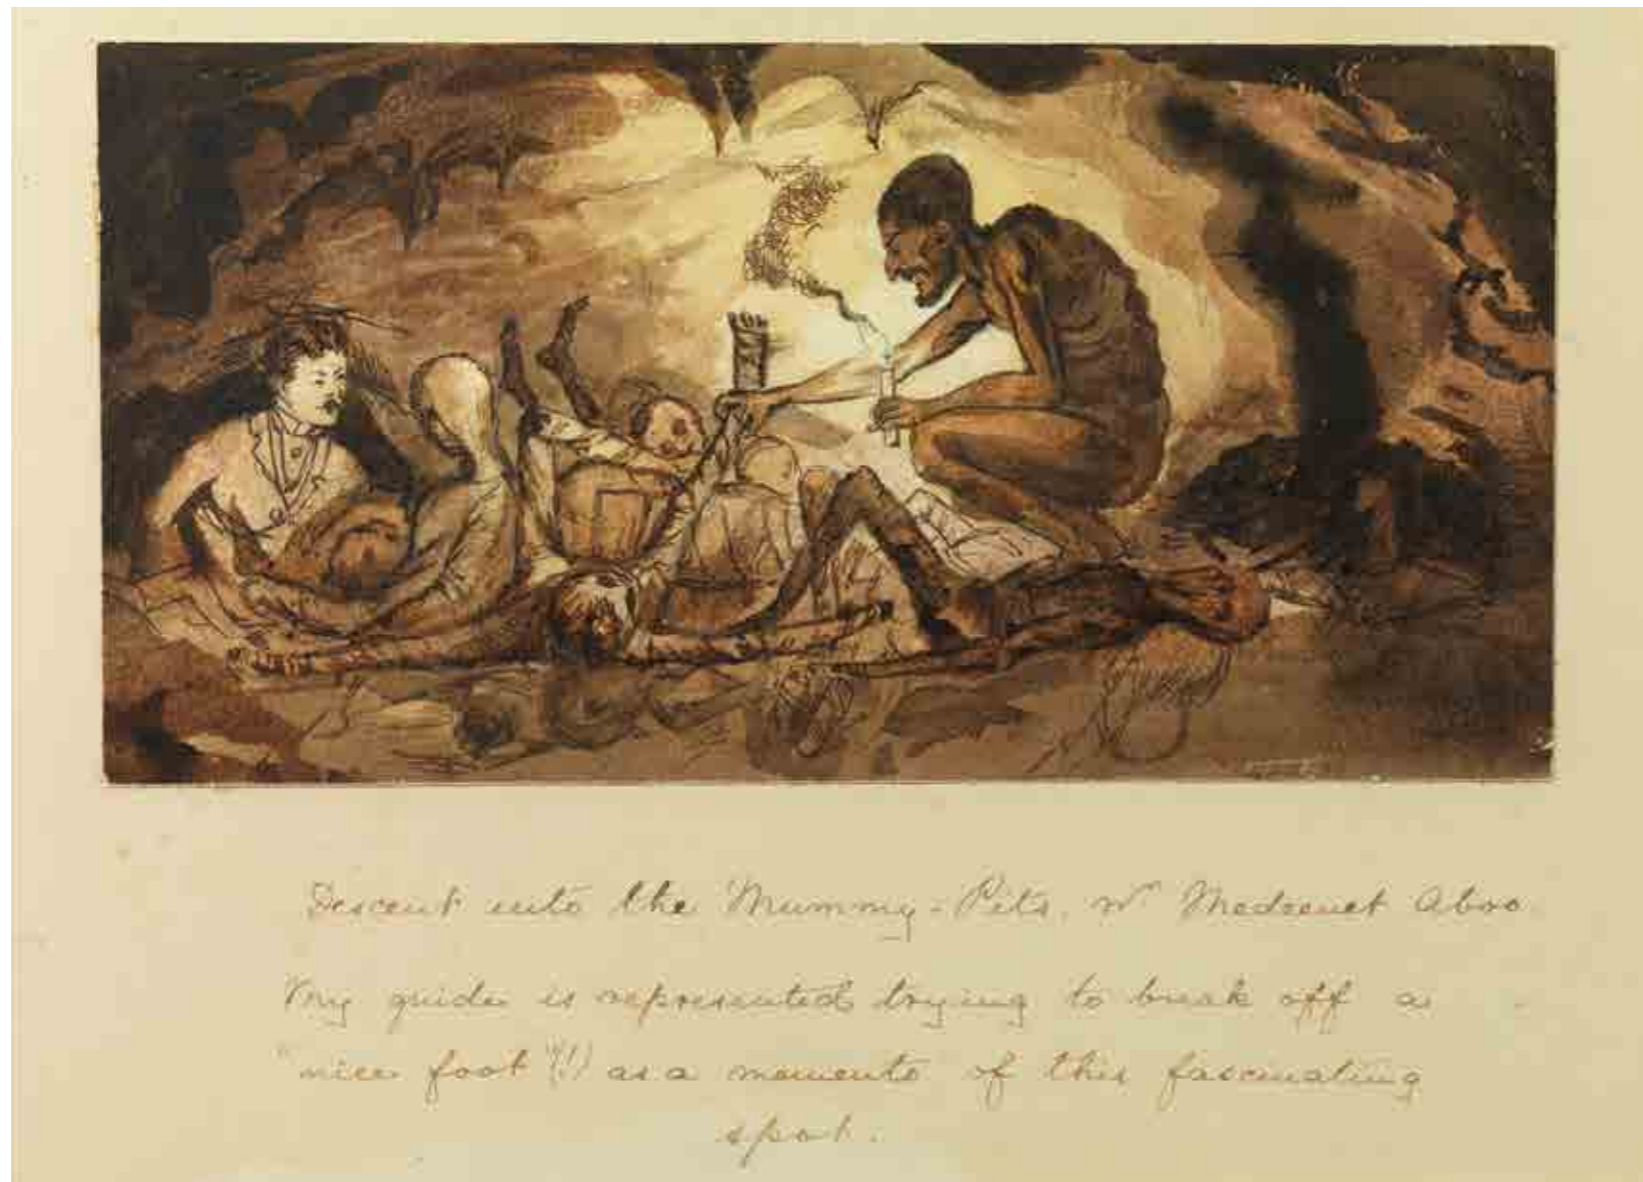 Descent into the Mummy-Pits, nr Medeenet Aboo.
My guide is represented trying to break off a
"nice foot"(!) as a memento of this fascinating
spot.